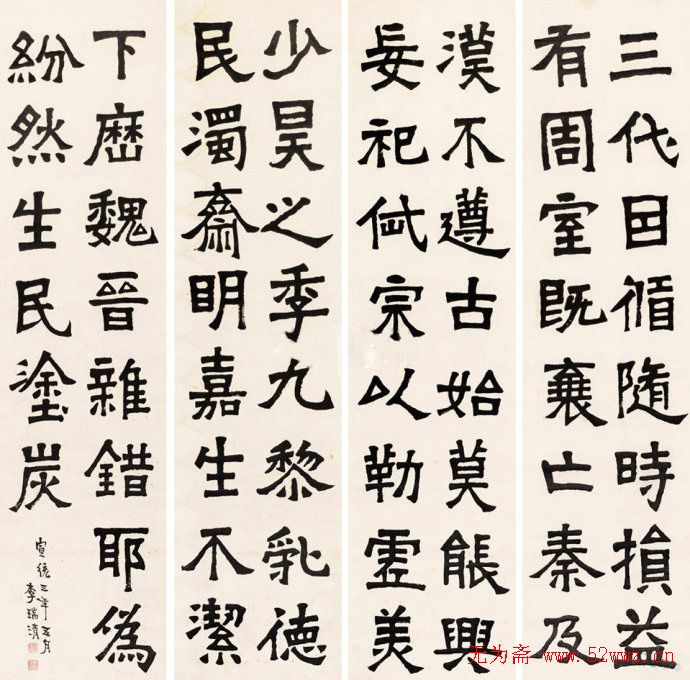 三代囙循隨時損益
有周室既衰亡秦及
漢不遵古始莫能興
妄祀岱宗以勒虛美
少昊之季九黎亂德
民濁齋明嘉生不潔
下歷魏晉雜錯耶為
紛然生民塗炭
宣統三年五月
李瑞清
无为斋 www.52wwz.cn